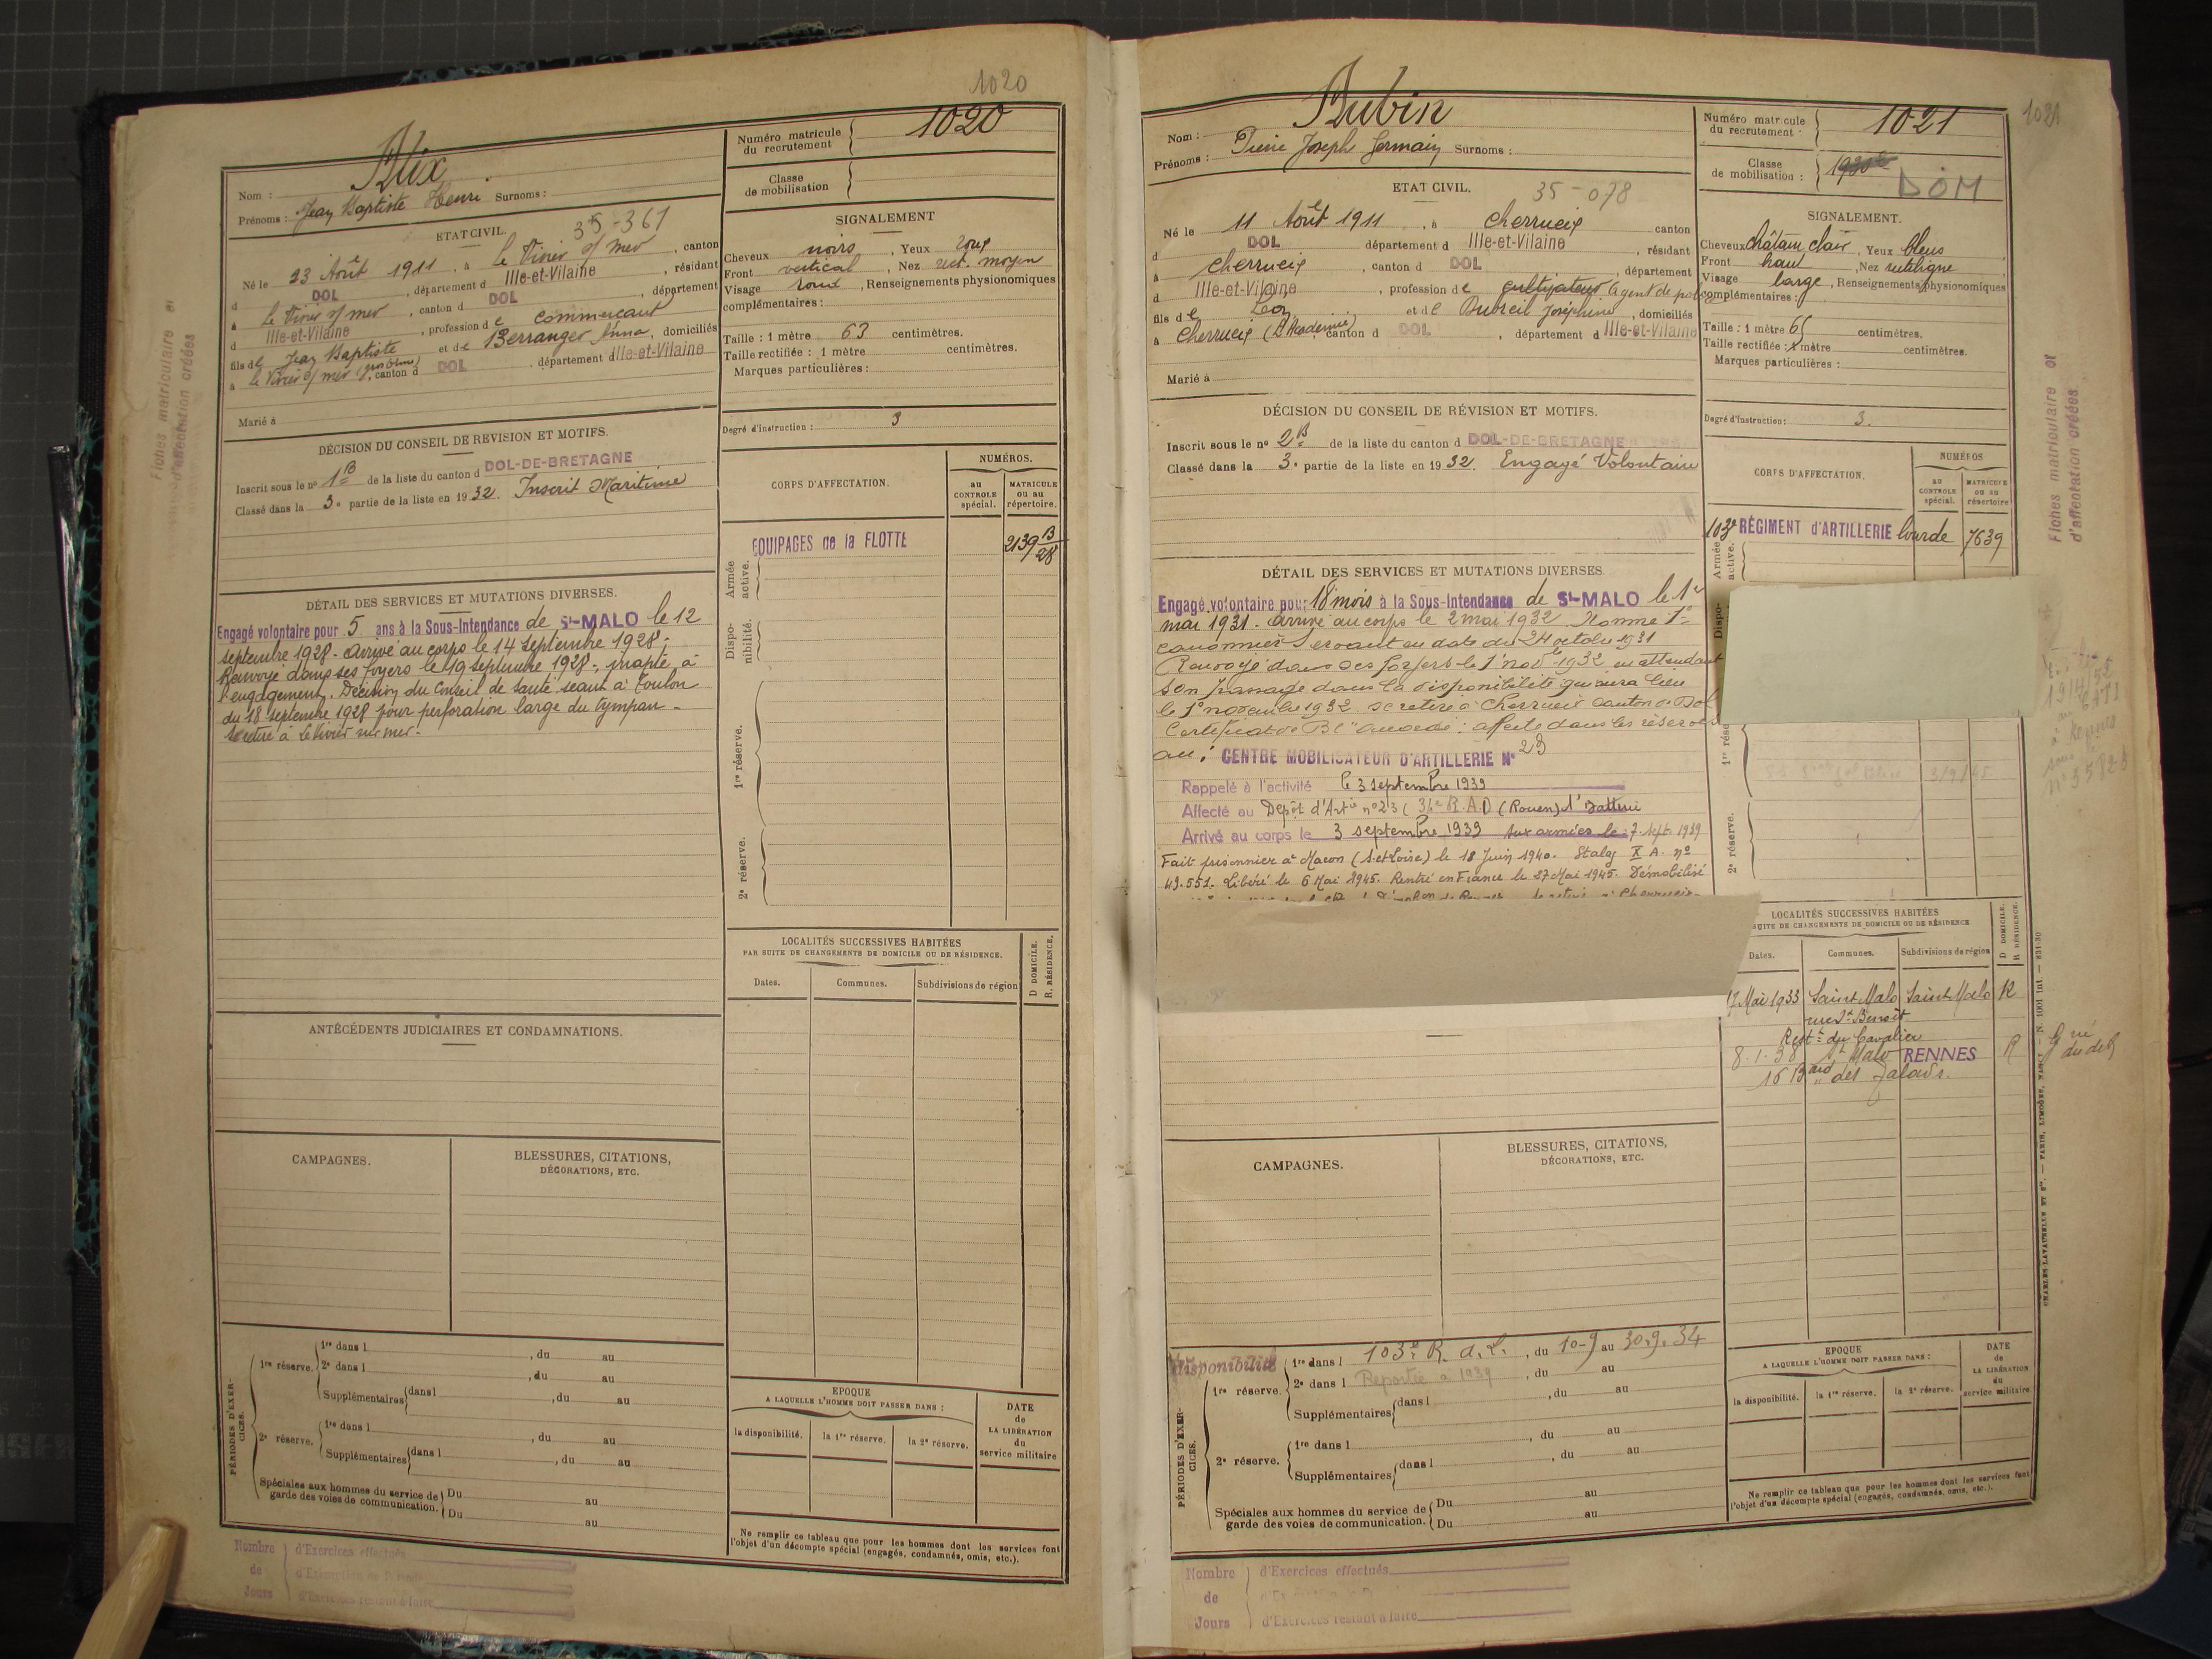 1020
Nom : Alix
Prénoms : Jean Baptiste Henri Surnoms :
Numéro matricule du recrutement 1020
Classe de mobilisation
ETAT CIVIL.
35-361
Né le 23 Août 1911, à le Vivier s/ mer, canton
d DOL, département d Ille-et-Vilaine, résidant
à le Vivier s/ mer, canton d DOL, département
d Ille-et-Vilaine, profession de commerçant
fils de Jean Baptiste et de Berranger Anna, domiciliés
à le Vivier s/ mer, canton d DOL, département d Ille-et-Vilaine
Marié à
SIGNALEMENT
Cheveux noirs, Yeux roux
Front vertical, Nez rect. moyen
Visage rond, Renseignements physionomiques
complémentaires :
Taille : 1 mètre 63 centimètres.
Taille rectifiée : 1 mètre centimètres.
Marques particulières :
Degré d'instruction : 3
DÉCISION DU CONSEIL DE RÉVISION ET MOTIFS.
Inscrit sous le nº 1B de la liste du canton d DOL-DE-BRETAGNE
Classé dans la 3e partie de la liste en 1932. Inscrit Maritime
CORPS D'AFFECTATION.
NUMÉROS.
au CONTROLE spécial.
MATRICULE ou au répertoire.
EQUIPAGES de la FLOTTE 2139 B/28
Armée active.
Disponibilité.
1re réserve.
2e réserve.
DÉTAIL DES SERVICES ET MUTATIONS DIVERSES.
Engagé volontaire pour 5 ans à la Sous-Intendance de St-MALO le 12
septembre 1928. Arrivé au corps le 14 septembre 1928.
Renvoyé dans ses foyers le 19 septembre 1928, inapte à
l'engagement. Décision du Conseil de santé séant à Toulon
du 18 septembre 1928 pour perforation large du tympan.
Se retire à le Vivier sur mer.
ANTÉCÉDENTS JUDICIAIRES ET CONDAMNATIONS.
LOCALITÉS SUCCESSIVES HABITÉES
PAR SUITE DE CHANGEMENTS DE DOMICILE OU DE RÉSIDENCE.
Dates.
Communes.
Subdivisions de région
D DOMICILE.
R. RÉSIDENCE.
CAMPAGNES.
BLESSURES, CITATIONS,
DÉCORATIONS, ETC.
PÉRIODES D'EXERCICES.
1re réserve. 1re dans l , du au
2e dans l , du au
Supplémentaires dans l , du au
2e réserve. 1re dans l , du au
Supplémentaires dans l , du au
Spéciales aux hommes du service de
garde des voies de communication. Du au
Du au
EPOQUE
A LAQUELLE L'HOMME DOIT PASSER DANS :
la disponibilité.
la 1re réserve.
la 2e réserve.
DATE de LA LIBÉRATION du service militaire
Ne remplir ce tableau que pour les hommes dont les services font
l'objet d'un décompte spécial (engagés, condamnés, omis, etc.).
Nombre de Jours
d'Exercices effectués
d'Exercices restant à faire
Fiches matriculaire et
d'affectation créées
1021
Nom : Aubin
Prénoms : Pierre Joseph Germain Surnoms :
Numéro matricule du recrutement : 1021
Classe de mobilisation : 1930
DOM
ETAT CIVIL.
35-078
Né le 11 Août 1911, à Cherrueix canton
d DOL département d Ille-et-Vilaine, résidant
à Cherrueix, canton d DOL, département
d Ille-et-Vilaine, profession de cultivateur Agent de
fils de Léon et de Dubreil Joséphine, domiciliés
à Cherrueix, canton d DOL, département d Ille-et-Vilaine
Marié à
SIGNALEMENT.
Cheveux châtain clair, Yeux bleus
Front haut, Nez rectiligne
Visage large, Renseignements physionomiques
complémentaires :
Taille : 1 mètre 65 centimètres.
Taille rectifiée : 1 mètre centimètres.
Marques particulières :
Degré d'instruction : 3.
DÉCISION DU CONSEIL DE RÉVISION ET MOTIFS.
Inscrit sous le nº 2B de la liste du canton d DOL-DE-BRETAGNE
Classé dans la 3e partie de la liste en 1932. Engagé Volontaire
CORPS D'AFFECTATION.
NUMÉROS
au CONTROLE spécial.
MATRICULE ou au répertoire
103e RÉGIMENT d'ARTILLERIE lourde 7639
Armée active.
Dispo-
2e réserve.
DÉTAIL DES SERVICES ET MUTATIONS DIVERSES.
Engagé volontaire pour 18 mois à la Sous-Intendance de St-MALO le 1er
mai 1931. Arrivé au corps le 2 mai 1932. Nommé 1er
canonnier servant en date du 24 octobre 1931
Renvoyé dans ses foyers le 1er nov 1932 en attendant
son passage dans la disponibilité qui aura lieu
le 1er novembre 1932. Se retire à Cherrueix canton de Dol
Certificat de B C accordé. affecté dans les réserves
au : CENTRE MOBILISATEUR D'ARTILLERIE Nº 23
Rappelé à l'activité le 3 septembre 1939
Affecté au Dépôt d'Artie nº 23 (R.A.D) (Rouen) 1e Batterie
Arrivé au corps le 3 septembre 1939 aux armées le 7 Sept. 1939
Fait prisonnier à Macon (S.et Loire) le 18 Juin 1940. Stalag X A. nº
49.551. Libéré le 6 Mai 1945. Rentré en France le 27 Mai 1945. Démobilisé
LOCALITÉS SUCCESSIVES HABITÉES
SUITE DE CHANGEMENTS DE DOMICILE OU DE RÉSIDENCE
Dates.
Communes.
Subdivisions de région
D DOMICILE.
R RÉSIDENCE.
17 Mai 1933 Saint Malo Saint Malo R
rue St Benoît
Restt du Cavalier
8.1.38 St Malo RENNES R
16 Bard des Talards.
CAMPAGNES.
BLESSURES, CITATIONS,
DÉCORATIONS, ETC.
Disponibilité
PÉRIODES D'EXERCICES.
1re réserve. 1re dans l 103e R. A. L., du 10-9 au 30.9.34
2e dans l Reportée à 1939, du au
Supplémentaires dans l , du au
2e réserve. 1re dans l , du au
Supplémentaires dans l , du au
Spéciales aux hommes du service de
garde des voies de communication. Du au
Du au
EPOQUE
A LAQUELLE L'HOMME DOIT PASSER DANS :
la disponibilité.
la 1re réserve.
la 2e réserve.
DATE de LA LIBÉRATION du service militaire
Ne remplir ce tableau que pour les hommes dont les services font
l'objet d'un décompte spécial (engagés, condamnés, omis, etc.).
Nombre de Jours
d'Exercices effectués
d'Exercices restant à faire
Fiches matriculaire et
d'affectation créées
1021